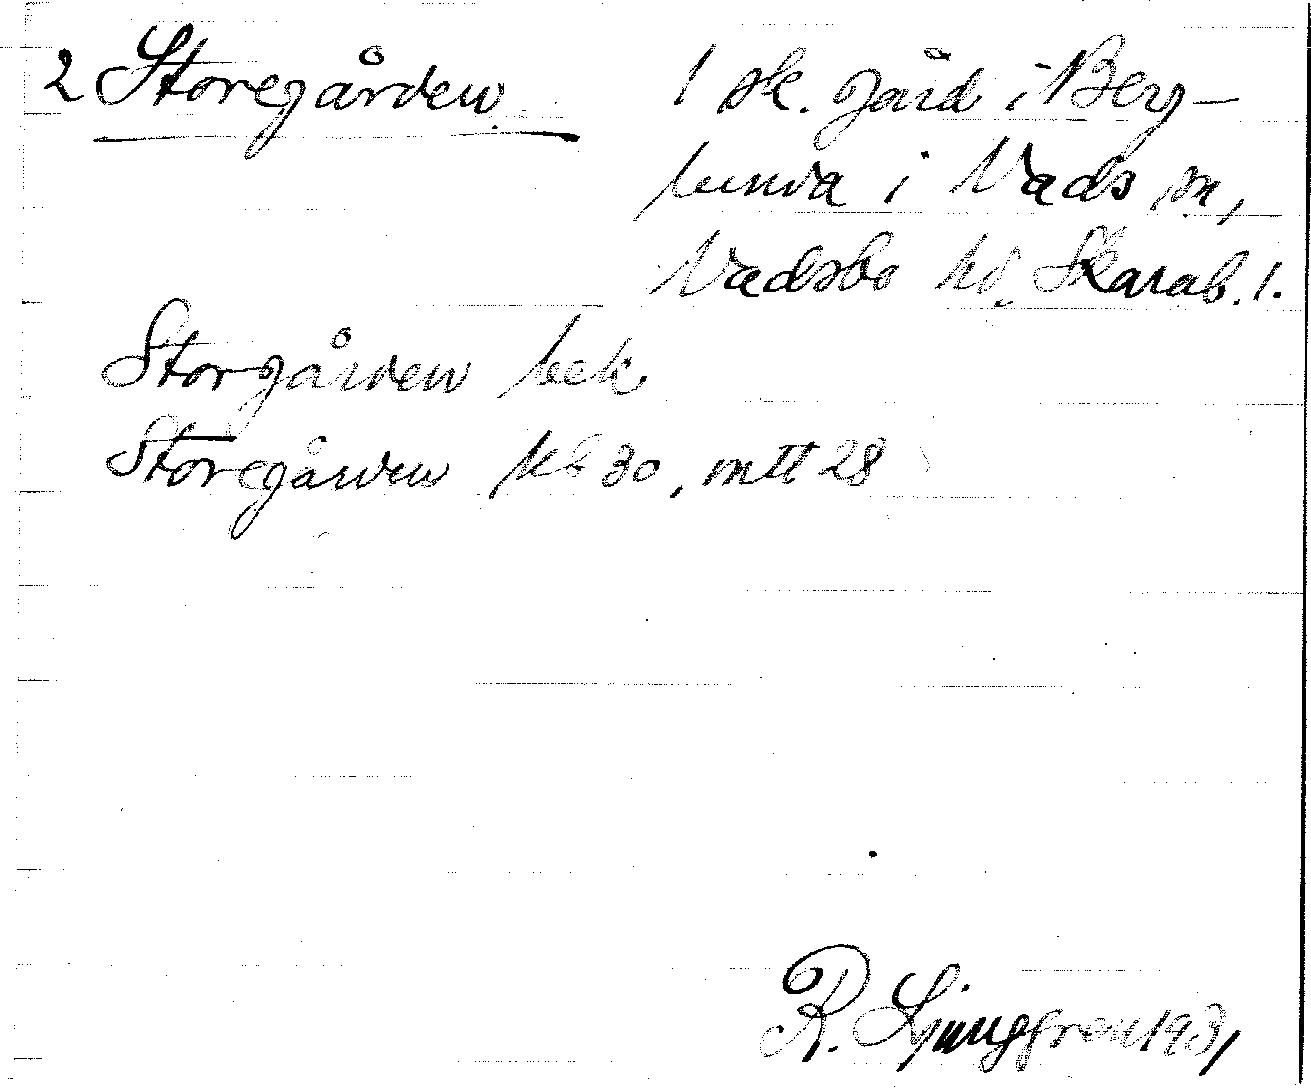 2 Storegården
1 sk. gård i Berg-
lunda i Vads sn,
Vadsbo hd, Skarab. l.
Storgården bek
Storegården kb 30, mtl 28
R. Ljunggren 1931